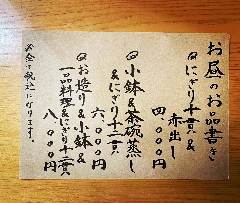 お昼のお品書き
◎にぎり十貫&
赤出し
四、〇〇〇円
◎小鉢&茶碗蒸し
&にぎり十二貫
六、〇〇〇円
◎お造り&小鉢&
一品料理&にぎり十二貫
八、〇〇〇円
お会計は税込になります。